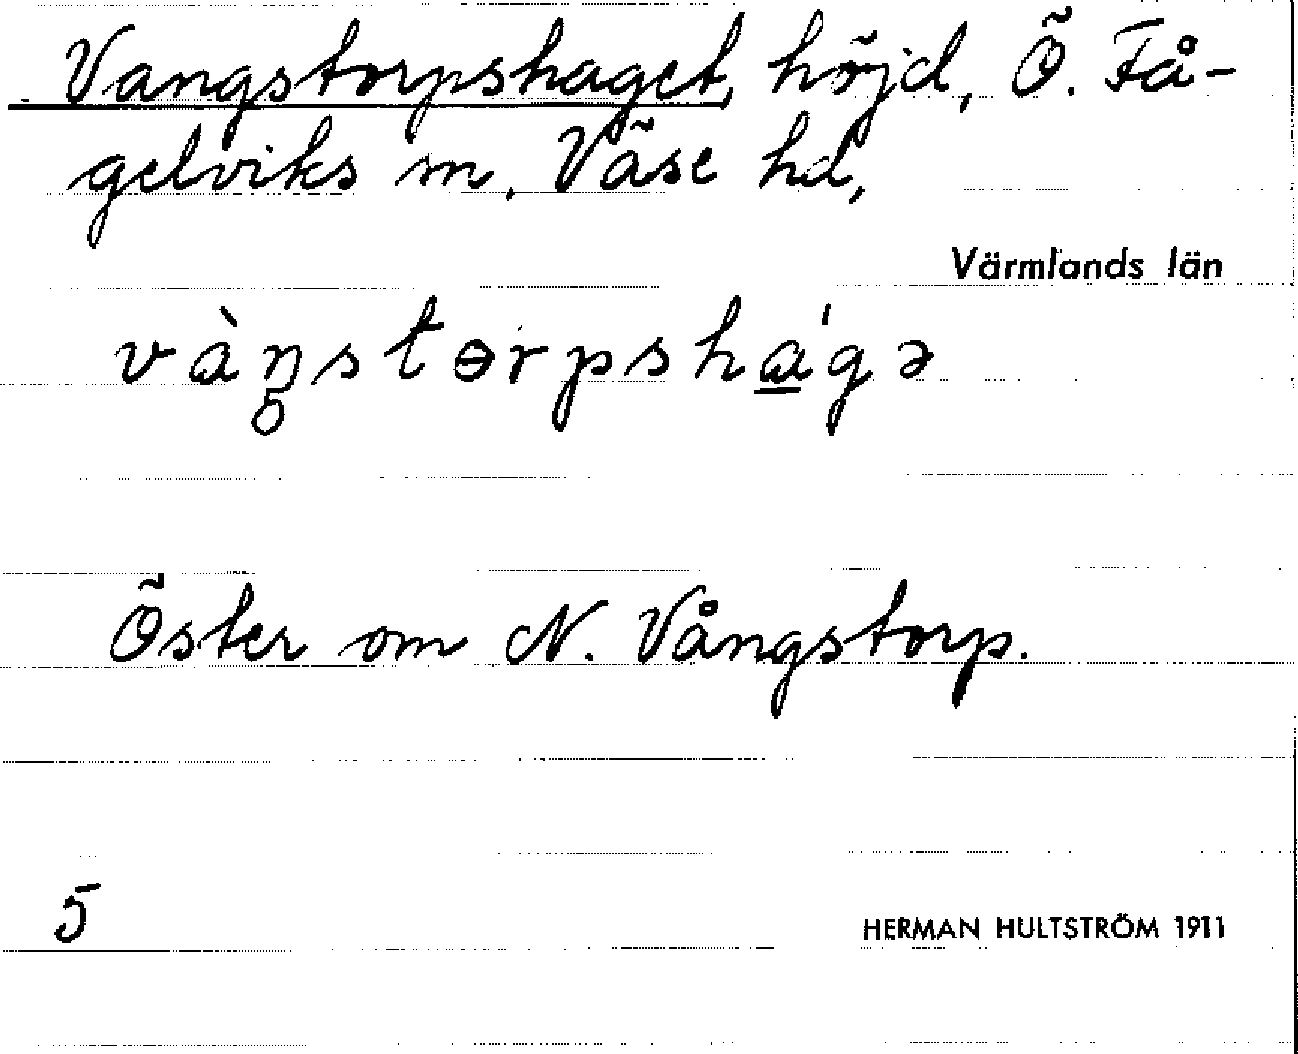 Vangstorpshaget, höjd, Ö. Få-
gelviks sn, Väse hd,
Värmlands län
vàŋ̥storpshá̲gə
Öster om N. Vångstorp.
5
HERMAN HULTSTRÖM 1911